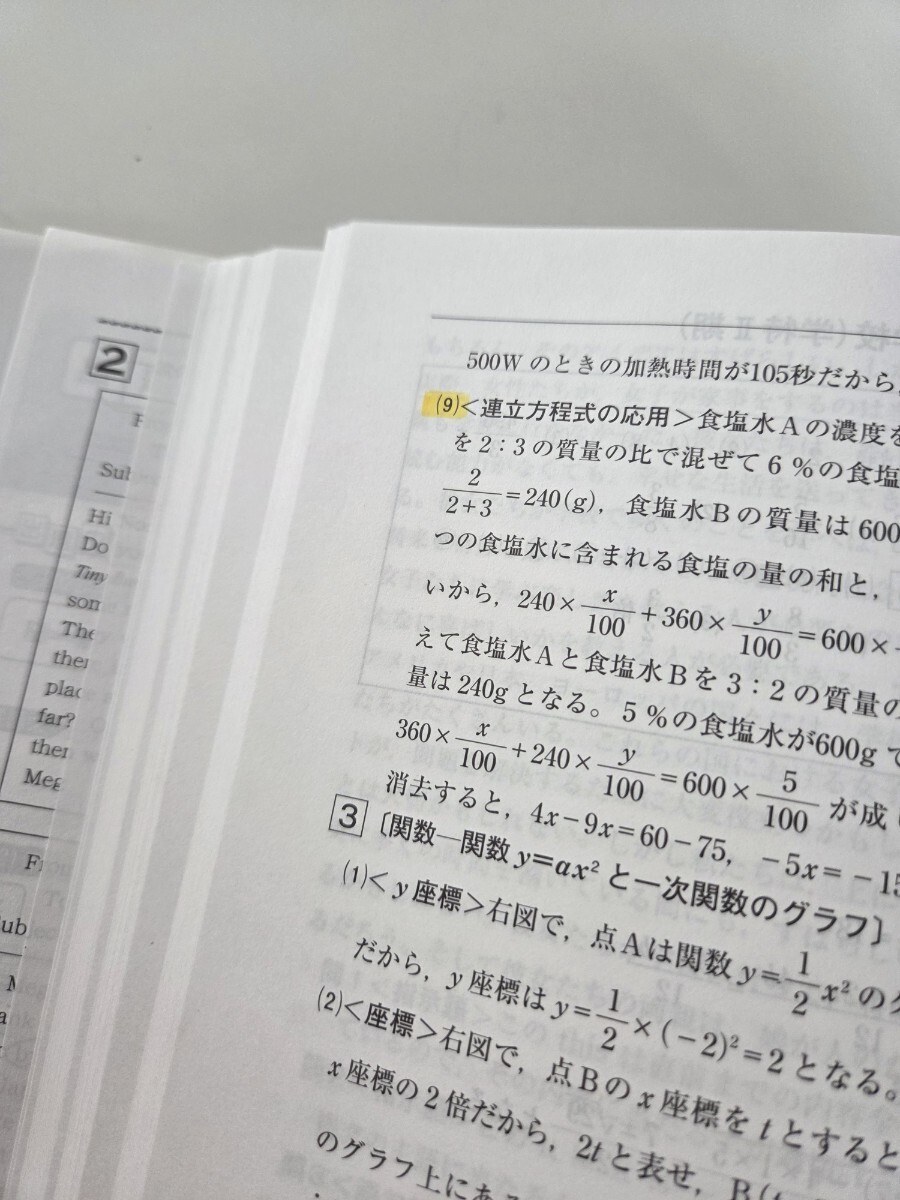 2
Sub
Hi
Do
Tiny
som
The
ther
plac
far?
ther
Meg
Fr
Sub
500W のときの加熱時間が105秒だから,
(9)<連立方程式の応用>食塩水Aの濃度を
を2:3の質量の比で混ぜて6%の食塩
2/(2+3)=240(g), 食塩水Bの質量は600
つの食塩水に含まれる食塩の量の和と,
いから, 240×x/100+360×y/100=600×
えて食塩水Aと食塩水Bを3:2の質量の
量は240gとなる。5%の食塩水が600gで
360×x/100+240×y/100=600×5/100 が成
消去すると, 4x-9x=60-75, -5x=-15
3 〔関数―関数 y=ax²と一次関数のグラフ〕
(1)<y座標>右図で, 点Aは関数 y=1/2x²のグ
だから, y座標は y=1/2×(-2)²=2となる。
(2)<座標>右図で, 点Bのx座標をtとすると
x座標の2倍だから, 2tと表せ, B(t
のグラフ上にある